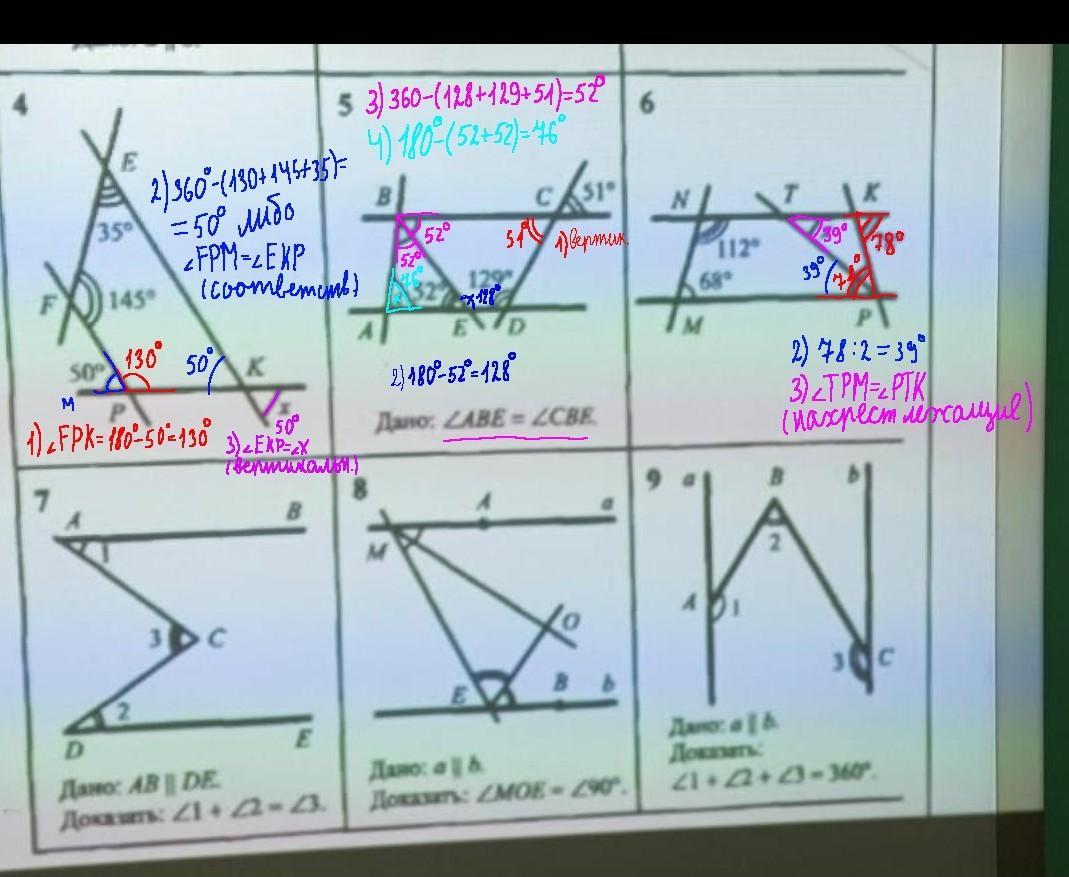 4
E
35°
F
145°
50°
130°
50°
K
M
P
x
50°
2) 360°-(130+145+35)=
=50° либо
∠FPM=∠EKP
(соответств)
1) ∠FPK=180°-50°=130°
3) ∠EKP=∠x
(вертикальн.)
5
3) 360-(128+129+51)=52°
4) 180°-(52+52)=76°
B
C
51°
52°
51°
1) вертик.
52°
76°
x
52°
128°
129°
A
E
D
2) 180°-52°=128°
Дано: ∠ABE = ∠CBE.
6
N
T
K
112°
39°
78°
39°
68°
M
P
2) 78:2=39°
3) ∠TPM=∠PTK
(накрест лежащие)
7
A
B
1
3
C
2
D
E
Дано: AB || DE.
Доказать: ∠1 + ∠2 = ∠3.
8
A
a
M
O
E
B
b
Дано: a || b.
Доказать: ∠MOE = ∠90°.
9
a
B
b
2
A
1
3
C
Дано: a || b.
Доказать:
∠1 + ∠2 + ∠3 = 360°.